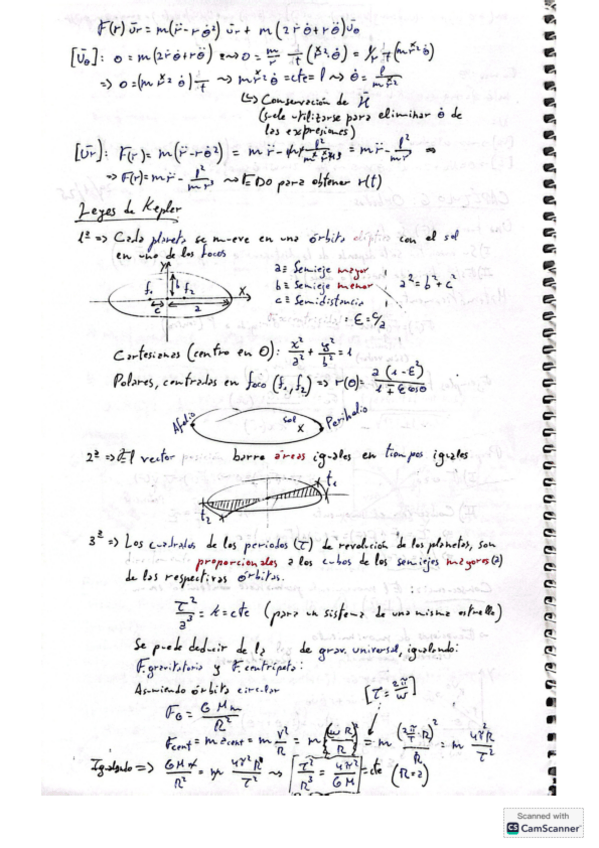 F(r) ūr = m(r̈ - rθ̇²) ūr + m(2ṙθ̇ + rθ̈)ūθ
[ūθ]: 0 = m(2ṙθ̇ + rθ̈) ⇝ 0 = m/r · d/dt (r²·θ̇) = 1/r d/dt (m r²θ̇)
=> 0 = (m r²·θ̇) d/dt ⇝ m r²·θ̇ = cte = l ⇝ θ̇ = l/(m r²)
↳ Conservación de
(suele utilizarse para eliminar θ̇ de
las expresiones)
[ūr]: F(r) = m(r̈ - rθ̇²) = m r̈ - m r l²/(m² r⁴) = m r̈ - l²/(m r³) =>
=> F(r) = m r̈ - l²/(m r³) ⇝ EDO para obtener r(t)
Leyes de Kepler
1ª => Cada planeta se mueve en una órbita elíptica con el sol
en uno de los focos
Y
X
f₁ b f₂
c a
a ≡ Semieje mayor
b ≡ Semieje menor
c ≡ Semidistancia
a² = b² + c²
= ε = c/a
Cartesianas (centro en O): x²/a² + y²/b² = 1
Polares, centradas en foco (f₁, f₂) => r(θ) = a(1 - ε²)/(1 ∓ ε cosθ)
Afelio sol x Perihelio
2ª => El vector posición barre áreas iguales en tiempos iguales
t₁
t₂
3ª => Los cuadrados de los periodos (τ) de revolución de los planetas, son
proporcionales a los cubos de los semiejes mayores (a)
de las respectivas órbitas.
τ²/a³ = k = cte (para un sistema de una misma estrella)
Se puede deducir de la de grav. universal, igualando:
F. gravitatoria y F. centrípeta:
Asumiendo órbita circular
[τ = 2π/ω]
F_G = G M m / R²
F_cent = m a_cent = m v²/R = m (ωR)²/R = m (2π/τ · R)²/R = m 4π²R/τ²
Igualando => G M m/R² = m 4π²R/τ² ⇝ [τ²/R³ = 4π²/(G M)] = cte (R = a)
Scanned with
CS CamScanner